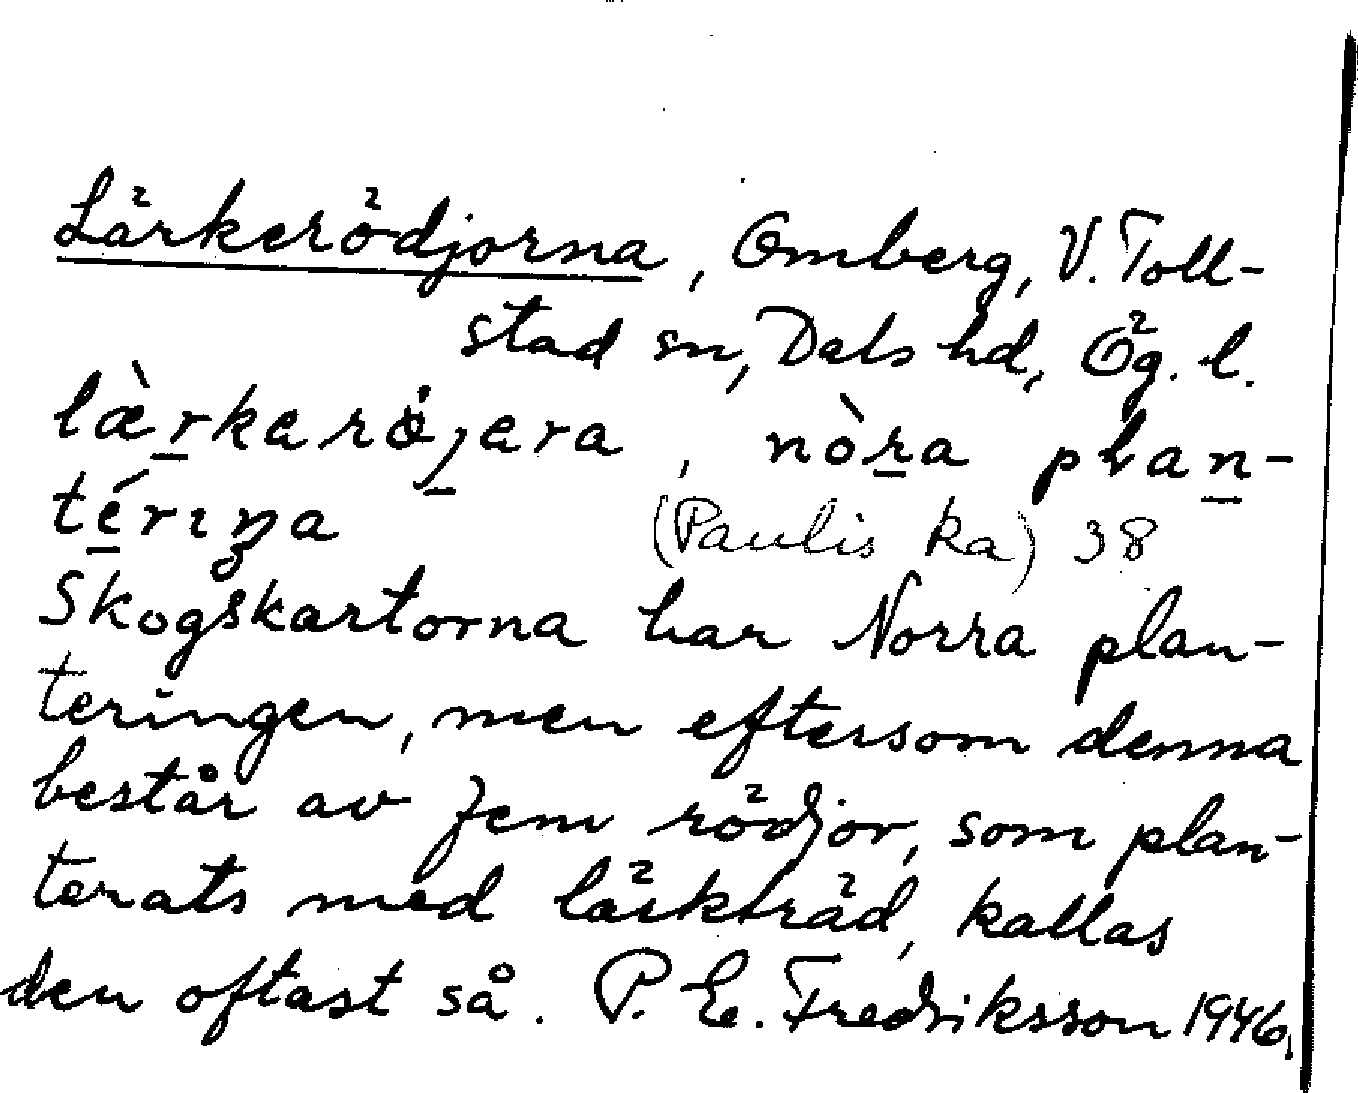 Lärkerödjorna, Omberg, V. Toll-
stad sn, Dals hd, Ög. l.
læ̀rkarö̀jera, nòra plan-
térıŋa (Paulis ka) 38
Skogskartorna har Norra plan-
teringen, men eftersom denna
består av fem rödjor, som plan-
terats med lärkträd, kallas
den oftast så. P. E. Fredriksson 1946.